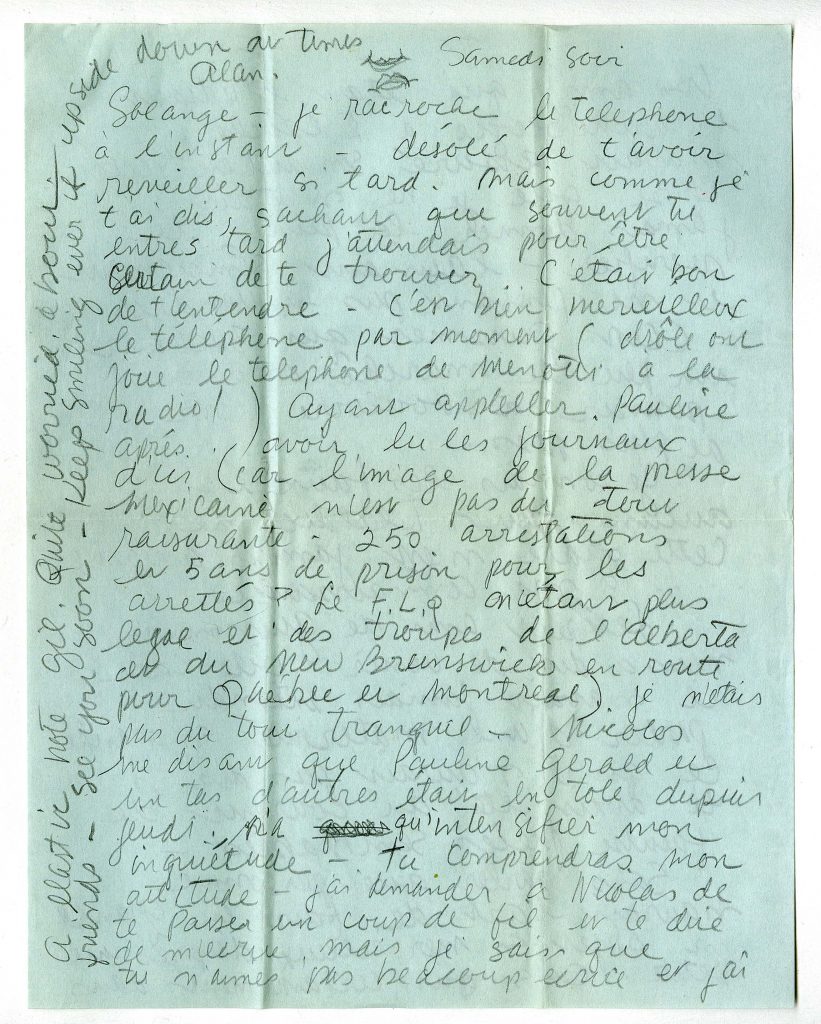 Samedi soir
Solange – je racroche le telephone
à l'instant – désolé de t'avoir
reveiller si tard. Mais comme je
t'ai dis, sachant que souvent tu
entres tard j'attendais pour être
certain de te trouver. C'etait bon
de t'entendre – C'est bien merveilleux
le téléphone par moment (drôle ont
joue le telephone de Menotti a la
radio!) Ayant appeller Pauline
après avoir lu les journaux
d'ici (car l'image de la presse
Mexicaine n'est pas du tout
rassurante – 250 arrestations
et 5 ans de prison pour les
arrettés? Le F.L.Q n'etant plus
legal et des troupes de l'Alberta
et du New Brunswick en route
pour Québec et Montreal) je n'etais
pas du tout tranquil – Nicolas
me disant que Pauline Gerald et
un tas d'autres était en tole depuis
jeudi. N'a qu'intensifier mon
inquiétude – Tu comprendras mon
attitude – j'ai demander a Nicolas de
te passer un coup de fil et te dire
de m'ecrire, mais je sais que
tu n'aimes pas beaucoup ecrire et j'ai
A last note Gil. Quite worried about
friends – see you soon – Keep smiling ever if upside down at times
Alan.